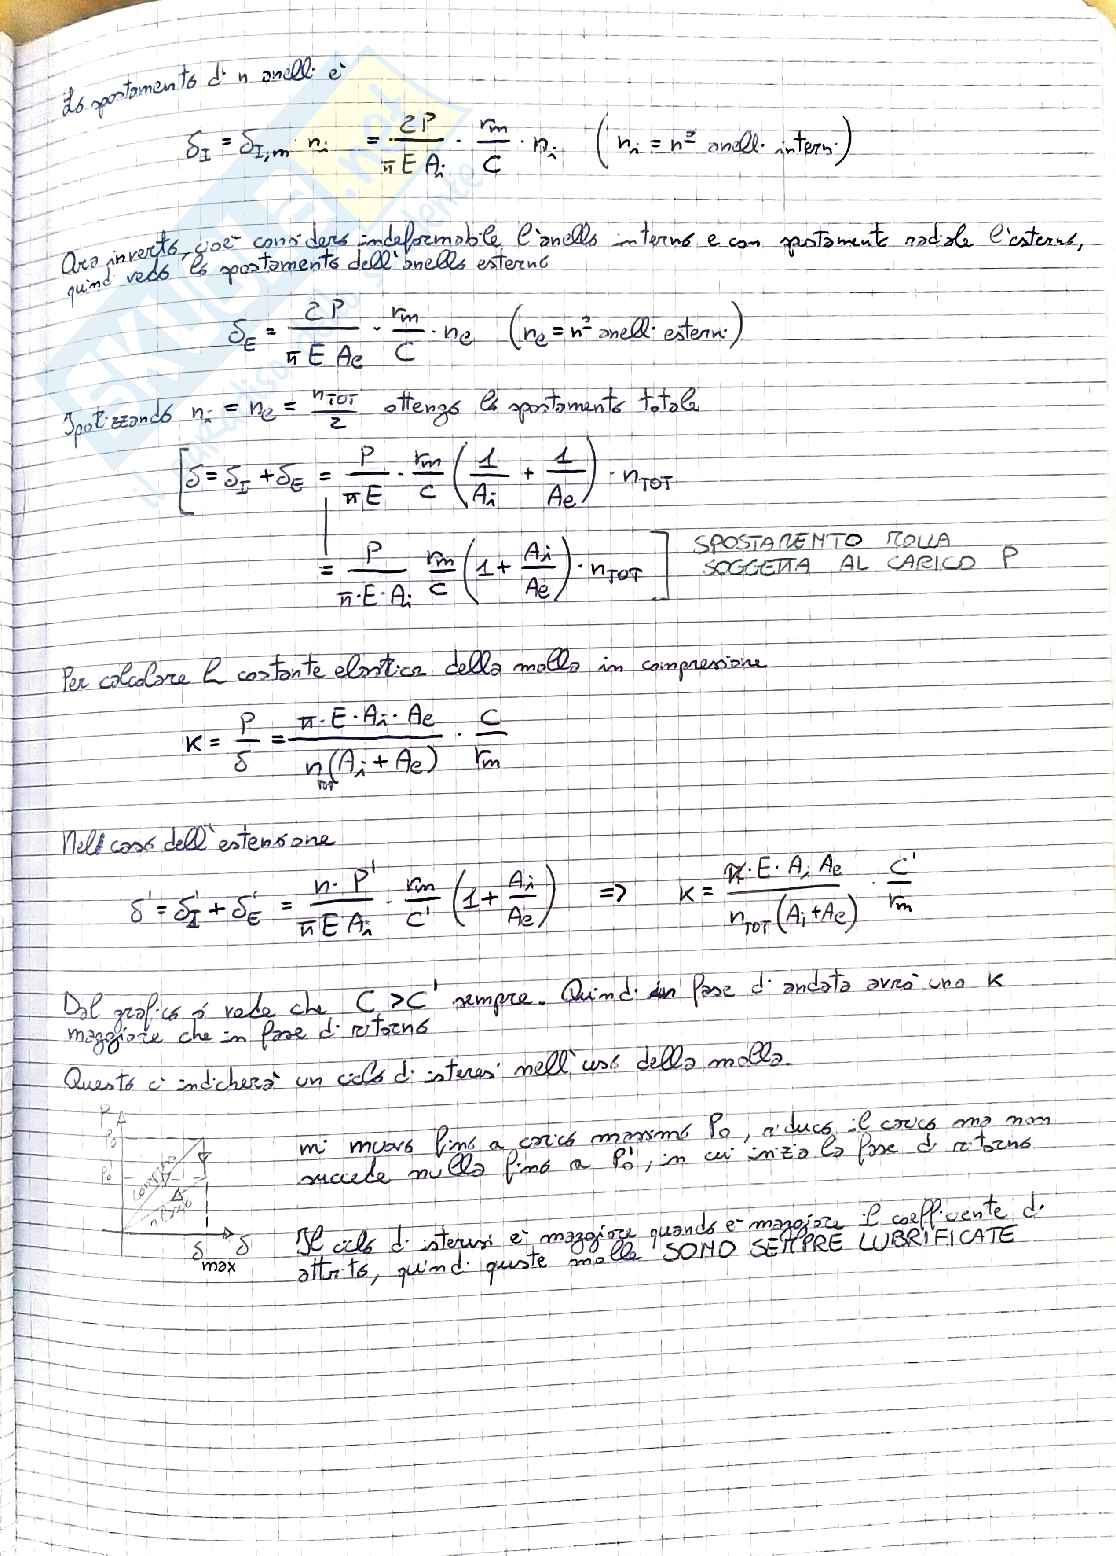 Lo spostamento di n anelli è
δ_I = δ_I,m · n_i = 2P/(π E A_i) · r_m/C · n_i (n_i = n° anelli interni)
Ora inverto, cioè considero indeformabile l'anello interno e con spostamento radiale l'esterno,
quindi vedo lo spostamento dell'anello esterno
δ_E = 2P/(π E A_e) · r_m/C · n_e (n_e = n° anelli esterni)
Ipotizzando n_i = n_e = n_TOT/2 ottengo lo spostamento totale
[δ = δ_I + δ_E = P/(π E) · r_m/C (1/A_i + 1/A_e) · n_TOT
= P/(π·E·A_i) r_m/C (1 + A_i/A_e) · n_TOT] SPOSTAMENTO MOLLA
SOGGETTA AL CARICO P
Per calcolare la costante elastica della molla in compressione
K = P/δ = π·E·A_i·A_e/(n_TOT(A_i + A_e)) · C/r_m
Nel caso dell'estensione
δ' = δ'_I + δ'_E = n·P'/(π E A_i) · r_m/C' (1 + A_i/A_e) => K = π·E·A_i A_e/(n_TOT(A_i + A_e)) · C'/r_m
Dal grafico si vede che C > C' sempre. Quindi in fase di andata avrò una K
maggiore che in fase di ritorno
Questo ci indicherà un ciclo di isteresi nell'uso della molla.
P
P_0
P_0'
carico
δ_max δ
mi muovo fino a carico massimo P_0, riduco il carico ma non
succede nulla fino a P_0', in cui inizia la fase di ritorno
Il ciclo di isteresi è maggiore quando è maggiore il coefficiente di
attrito, quindi queste molle SONO SEMPRE LUBRIFICATE